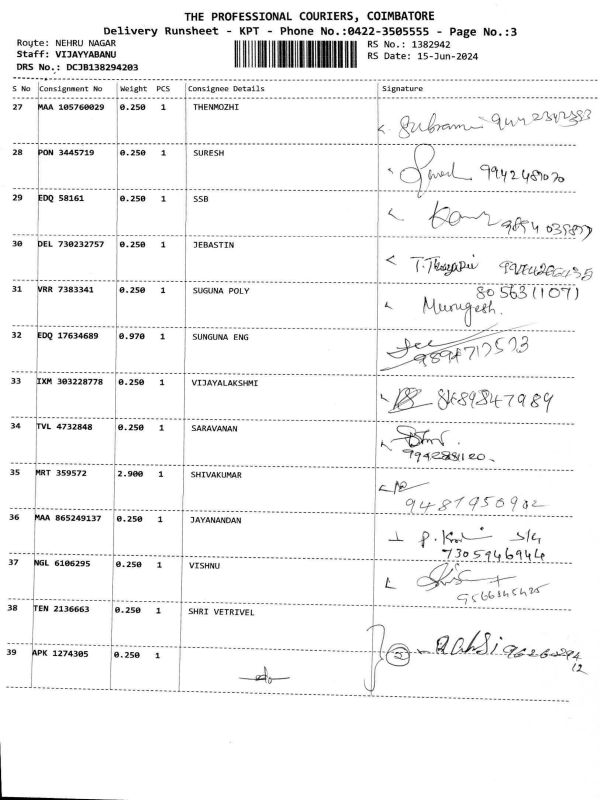 THE PROFESSIONAL COURIERS, COIMBATORE
Delivery Runsheet - KPT - Phone No.:0422-3505555 - Page No.:3
Route: NEHRU NAGAR RS No.: 1382942
Staff: VIJAYYABANU RS Date: 15-Jun-2024
DRS No.: DCJB138294203
S No Consignment No Weight PCS Consignee Details Signature
27 MAA 105760029 0.250 1 THENMOZHI
28 PON 3445719 0.250 1 SURESH
29 EDQ 58161 0.250 1 SSB
30 DEL 730232757 0.250 1 JEBASTIN
31 VRR 7383341 0.250 1 SUGUNA POLY 8056311071
Murugesh.
32 EDQ 17634689 0.970 1 SUNGUNA ENG
33 IXM 303228778 0.250 1 VIJAYALAKSHMI
34 TVL 4732848 0.250 1 SARAVANAN
35 MRT 359572 2.900 1 SHIVAKUMAR
9487950902
36 MAA 865249137 0.250 1 JAYANANDAN
7305946944
37 NGL 6106295 0.250 1 VISHNU
38 TEN 2136663 0.250 1 SHRI VETRIVEL
39 APK 1274305 0.250 1